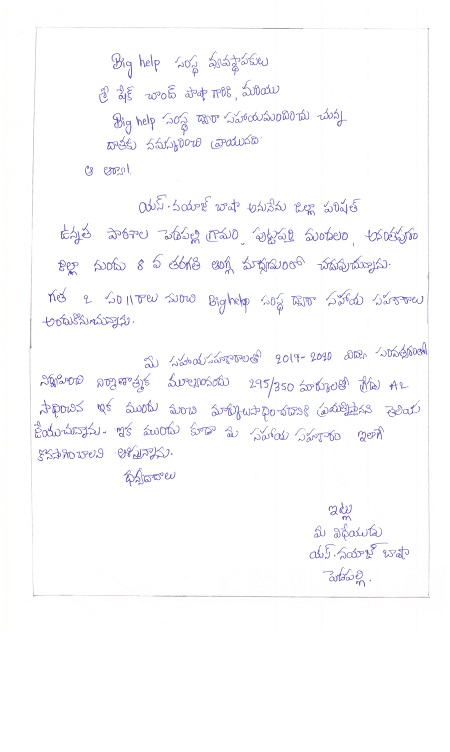 Big help సంస్థ వ్యవస్థాపకులు
శ్రీ షేక్ చాంద్ పాషా గారికి, మరియు
Big help సంస్థ ద్వారా సహాయమందించు చున్న
దాతకు నమస్కరించి వ్రాయునది
యస్. నయాజ్ బాషా అనునేను జిల్లా పరిషత్
ఉన్నత పాఠశాల పెడపల్లి గ్రామం, పుట్టపర్తి మండలం, అనంతపురం
జిల్లా నందు 8 వ తరగతి ఆంగ్ల మాధ్యమంలో చదువుచున్నాను.
గత 2 సం॥రాలు నుంచి Big help సంస్థ ద్వారా సహాయ సహకారాలు
అందుకొనుచున్నాను.
మీ సహాయసహకారాలతో 2019-2020 విద్యా సంవత్సరంలో
నిర్వహించిన నిర్మాణాత్మక మూల్యాంకనం 295/350 మార్కులతో గ్రేడు A2
సాధించిన ఇక ముందు మంచి మార్కులుసాధించడానికి ప్రయత్నిస్తానని తెలియ
చేయుచున్నాను. ఇక ముందు కూడా మీ సహాయ సహకారం ఇలాగే
కొనసాగించాలని ఆశిస్తున్నాను.
ధన్యవాదాలు
ఇట్లు
మీ విధేయుడు
యస్. నయాజ్ బాషా
పెడపల్లి.